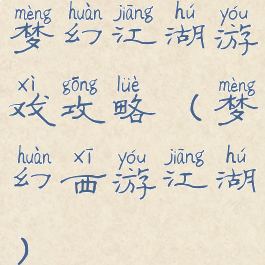 mèng huàn jiāng hú yóu
梦幻江湖游
xì gōng lüè mèng
戏攻略（梦
huàn xī yóu jiāng hú
幻西游江湖
）